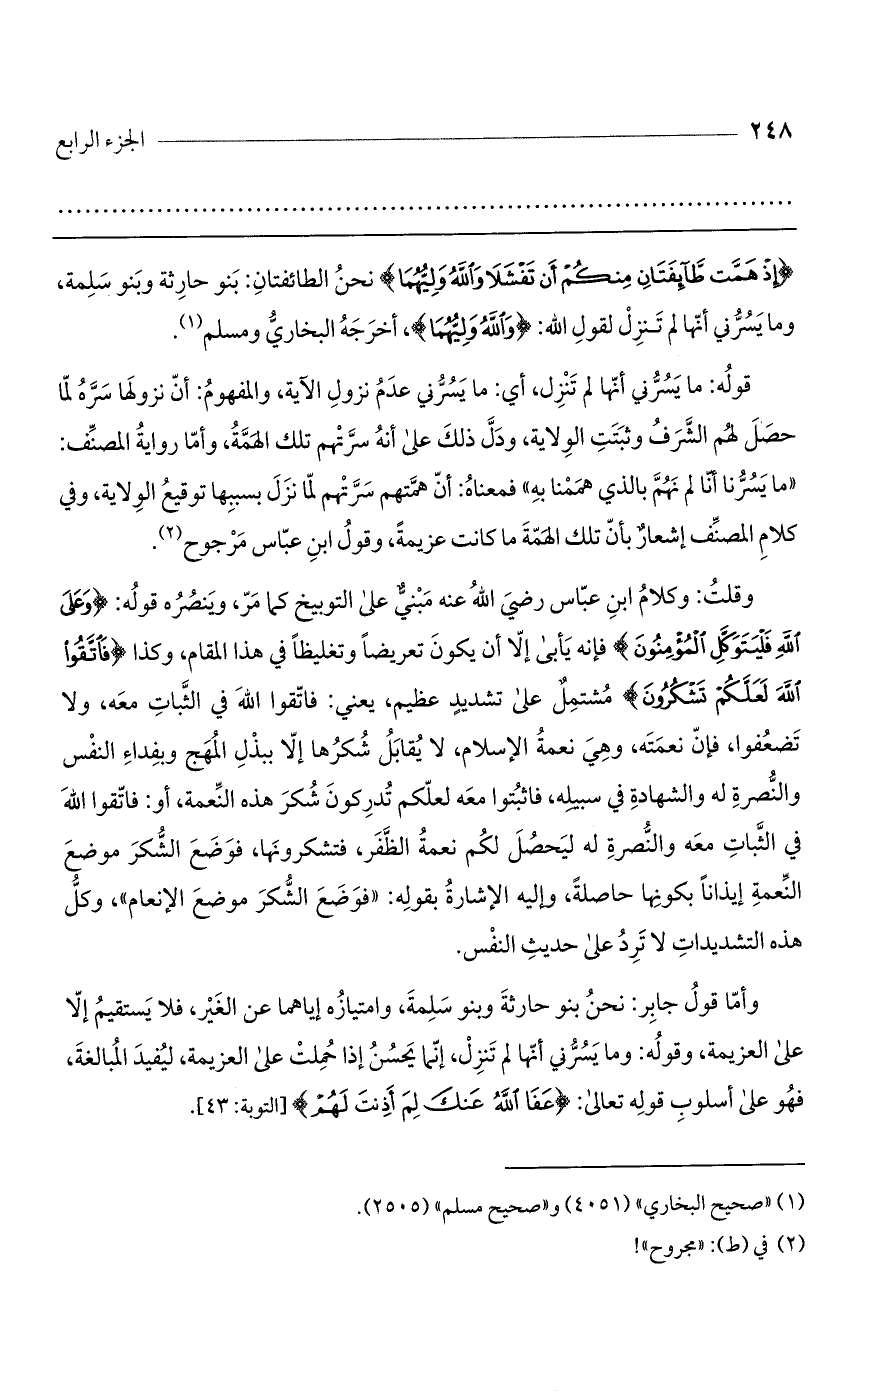 ٢٤٨ الجزء الرابع
﴿إِذْ هَمَّت طَّآئِفَتَانِ مِنكُمْ أَن تَفْشَلَا وَٱللَّهُ وَلِيُّهُمَا﴾ نحنُ الطائفتانِ: بَنو حارِثة وبَنو سَلِمة،
وما يَسُرُّني أنّها لم تَـنزِلْ لقولِ الله: ﴿وَٱللَّهُ وَلِيُّهُمَا﴾، أخرَجَهُ البخاريُّ ومسلم(١).
قولُه: ما يَسُرُّني أنّها لم تَنْزِل، أي: ما يَسُرُّني عدَمُ نزولِ الآية، والمفهومُ: أنّ نزولَها سَرَّهُ لمّا
حصَلَ لهُم الشَّرَفُ وثبَتَتِ الوِلاية، ودَلَّ ذلكَ على أنهُ سرَّتْهم تلك الهَمَّةُ، وأمّا روايةُ المصنِّف:
«ما يَسُرُّنا أنّا لم نَهُمَّ بالذي هممْنا بهِ» فمعناهُ: أنّ همَّتهم سَرَّتْهم لمّا نزَلَ بسببِها توقيعُ الوِلاية، وفي
كلامِ المصنِّف إشعارٌ بأنّ تلك الهَمّةَ ما كانت عزيمةً، وقولُ ابنِ عبّاس مَرْجوح(٢).
وقلتُ: وكلامُ ابنِ عبّاس رضيَ اللهُ عنه مَبْنيٌّ على التوبيخ كما مَرّ، ويَنصُرُه قولُه: ﴿وَعَلَى
ٱللَّهِ فَلْيَتَوَكَّلِ ٱلْمُؤْمِنُونَ﴾ فإنه يَأبى إلّا أن يكونَ تعريضاً وتغليظاً في هذا المقام، وكذا ﴿فَٱتَّقُوا۟
ٱللَّهَ لَعَلَّكُمْ تَشْكُرُونَ﴾ مُشتمِلٌ على تشديدٍ عظيم، يعني: فاتّقوا اللهَ في الثَّباتِ معَه، ولا
تَضعُفوا، فإنّ نعمَتَه، وهِيَ نعمةُ الإسلام، لا يُقابَلُ شُكرُها إلّا ببذْلِ المُهَج وبفِداءِ النفْس
والنُّصرةِ له والشهادةِ في سبيلِه، فاثبُتوا معَه لعلّكم تُدرِكونَ شُكرَ هذه النِّعمة، أو: فاتّقوا اللهَ
في الثَّباتِ معَه والنُّصرةِ له ليَحصُلَ لكُم نعمةُ الظَّفَر، فتشكرونَها، فوَضَعَ الشُّكرَ موضعَ
النِّعمةِ إيذاناً بكونِها حاصلةً، وإليه الإشارةُ بقولِه: «فوَضَعَ الشُّكرَ موضعَ الإنعام»، وكلُّ
هذه التشديداتِ لا تَرِدُ على حديثِ النفْس.
وأمّا قولُ جابِر: نحنُ بنو حارثةَ وبنو سَلِمةَ، وامتيازُه إياهما عن الغَيْر، فلا يَستقيمُ إلّا
على العزيمة، وقولُه: وما يَسُرُّني أنّها لم تَنزِلْ، إنّما يَحسُنُ إذا حُمِلتْ على العزيمة، ليُفيدَ المُبالغةَ،
فهُو على أسلوبِ قولِه تعالى: ﴿عَفَا ٱللَّهُ عَنكَ لِمَ أَذِنتَ لَهُمْ﴾ [التوبة: ٤٣].
(١) «صحيح البخاري» (٤٠٥١) و«صحيح مسلم» (٢٥٠٥).
(٢) في (ط): «مجروح»!